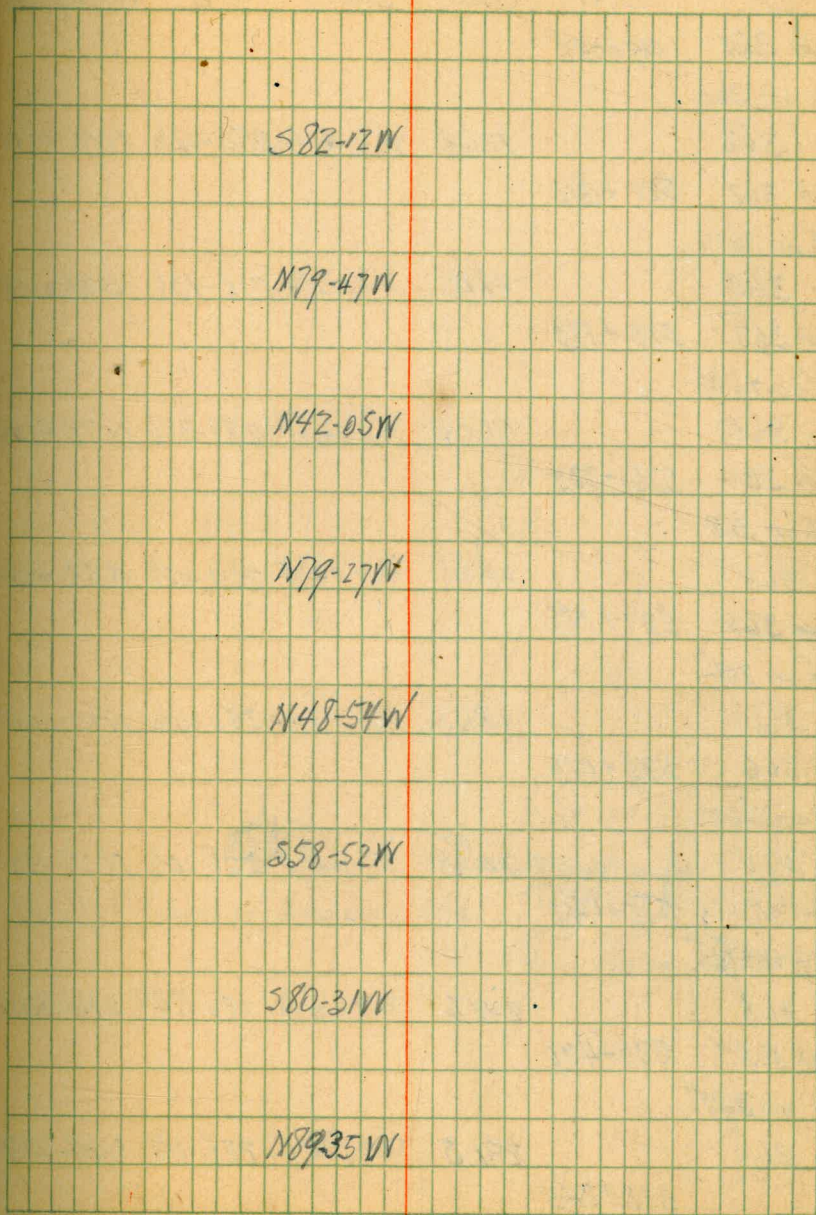 S82-12W
N79-47W
N42-05W
N79-27W
N48-54W
S58-52W
S80-31W
N89-35W